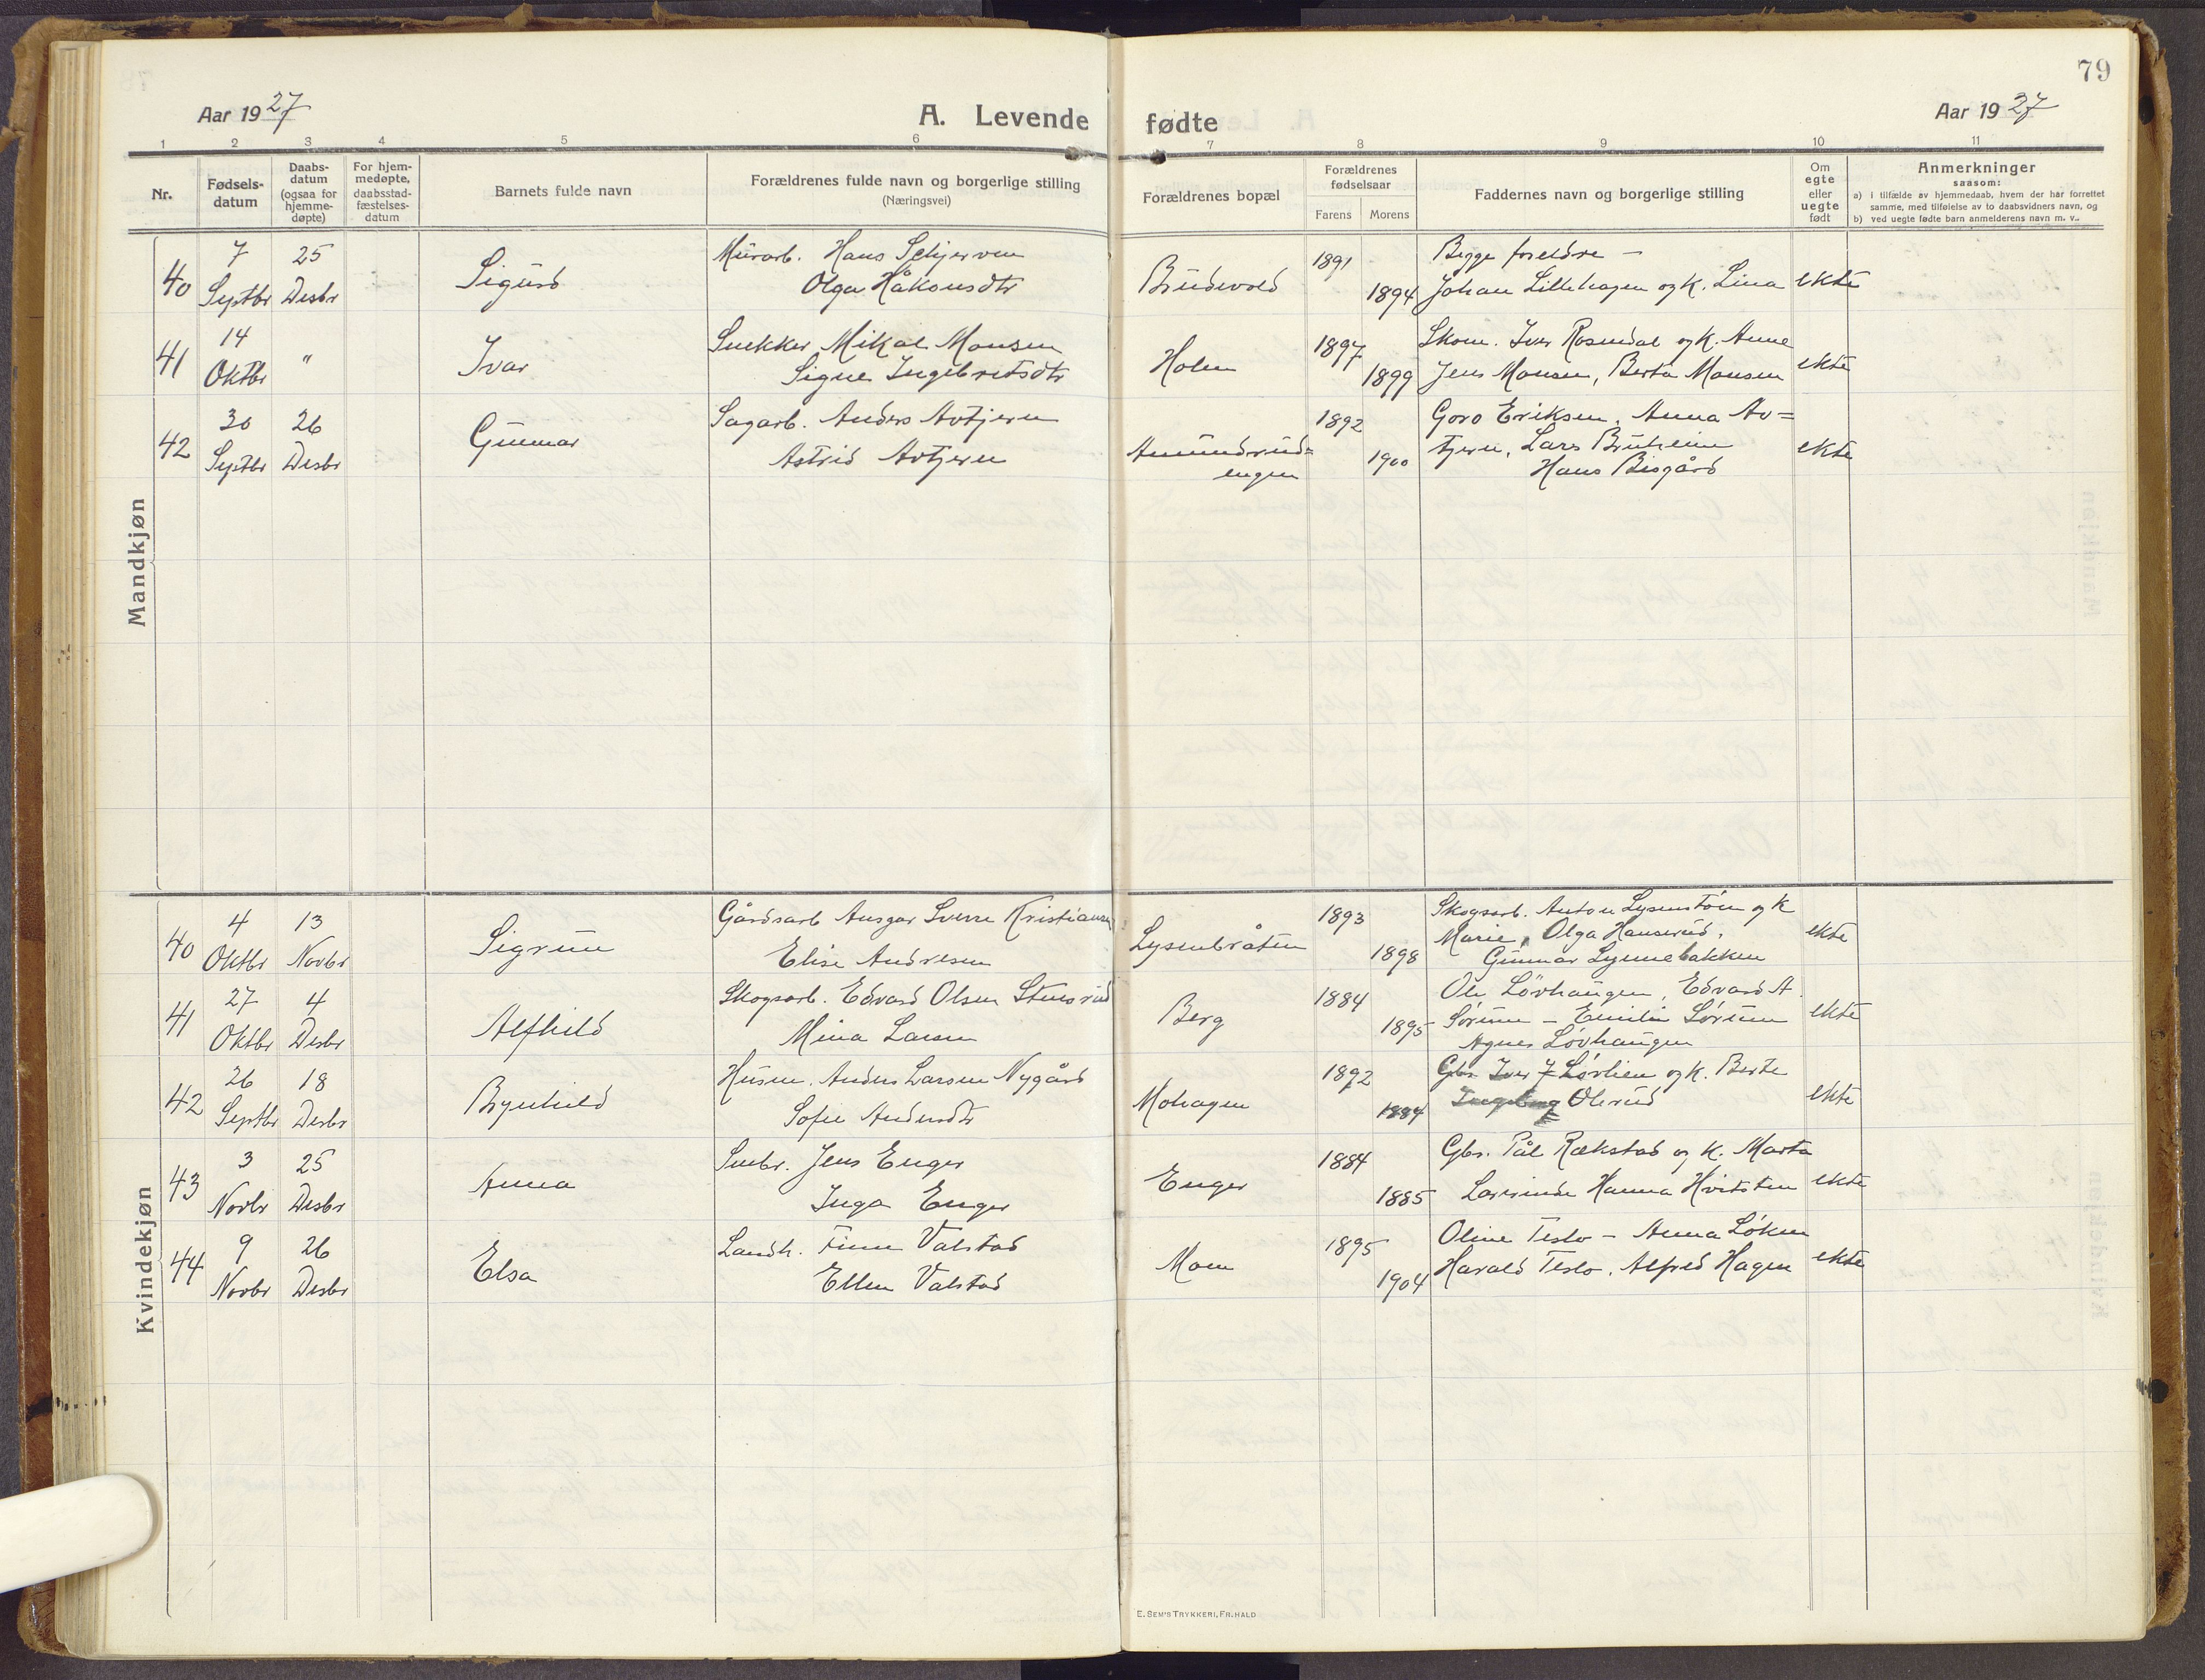 79
Aar 1927
A. Levende fødte
Aar 1927
1 2 3 4 5 6 7 8 9 10 11
Nr.
Fødsels-
datum
Daabs-
datum
(ogsaa for
hjemme-
døpte)
For hjem-
medøpte,
daabsstad-
fæstelses-
datum
Barnets fulde navn
Forældrenes fulde navn og borgerlige stilling
(Næringsvei)
Forældrenes bopæl
Forældrenes
fødselsaar
Farens Morens
Faddernes navn og borgerlige stilling
Om
egte
eller
uegte
født
Anmerkninger
saasom:
a) i tilfælde av hjemmedaab, hvem der har forrettet
samme, med tilføielse av to daabsvidners navn, og
b) ved uegte fødte barn anmelderens navn m. v..
Mandkjøn
7 25 Murarb. Hans Schjerven 1891 Begge foreldre -
40 Septbr Desbr Sigurd Olga Håkonsdtr Brudevold 1894 Johan Lillehagen og K. Lina ekte
14 Snekker Mikal Monsen 1897 Skom. Iver Rosendal og K. Anne
41 Oktbr " Ivar Signe Ingebretsdtr Holm 1899 Jens Monsen, Berta Monsen ekte
30 26 Sagarb. Anders Avtjern 1892 Goro Eriksen, Anna Av=
42 Septbr Desbr Gunnar Astrid Avtjern Amundrud= 1900 tjern, Lars Bruheim ekte
engen Hans Bisgård
Kvindekjøn
4 13 Gårdsarb Ansgar Sverre Kristiansen 1893 Skogsarb. Anton Lysenstøen og K
40 Oktbr Novbr Sigrun Elise Andresen Lysenbråten 1898 Marie, Olga Hanserud, ekte
Gunnar Lynnebakken
27 4 Skogsarb. Edvard Olsen Stensrud 1884 Ole Løvhaugen, Edvard A.
41 Oktbr Desbr Alfhild Mina Larsen Berg 1895 Sørum - Emilie Sørum ekte
Agnes Løvhaugen
26 18 Husm. Anders Larsen Nygård 1892 Gbr. Iver J Lørlien og K. Berte
42 Septbr Desbr Brynhild Sofie Andersdtr Mohagen 1884 Ingeborg Olerud ekte
3 25 Smbr. Jens Enger 1884 Gbr. Pål Rækstad og K. Marta
43 Novbr Desbr Anna Inga Enger Enger 1885 Hanna Hvitsten ekte
9 26 Landh. Finn Valstad 1895 Oline Teslo - Anna Løken
44 Novbr Desbr Elsa Ellen Valstad Moen 1904 Harald Teslo, Alfred Hagen ekte
E. SEM'S TRYKKERI, FR.HALD